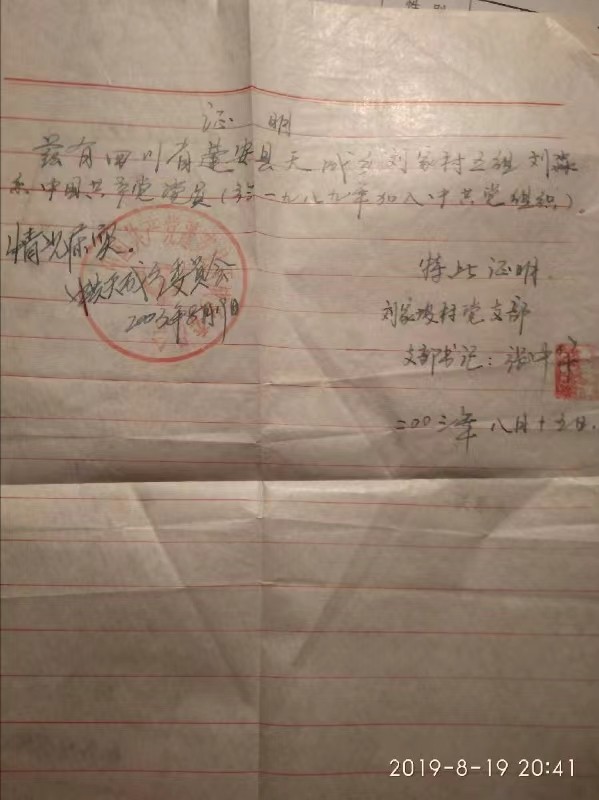 证 明
兹有四川省蓬安县天成乡刘家村五组刘
系中国共产党党员(于一九八九年加入中共党组织).
情况属实.
中共天成乡委员会
2003年8月19日
特此证明
刘家坡村党支部
支部书记:张中
二00三年八月十五日.
2019-8-19 20:41